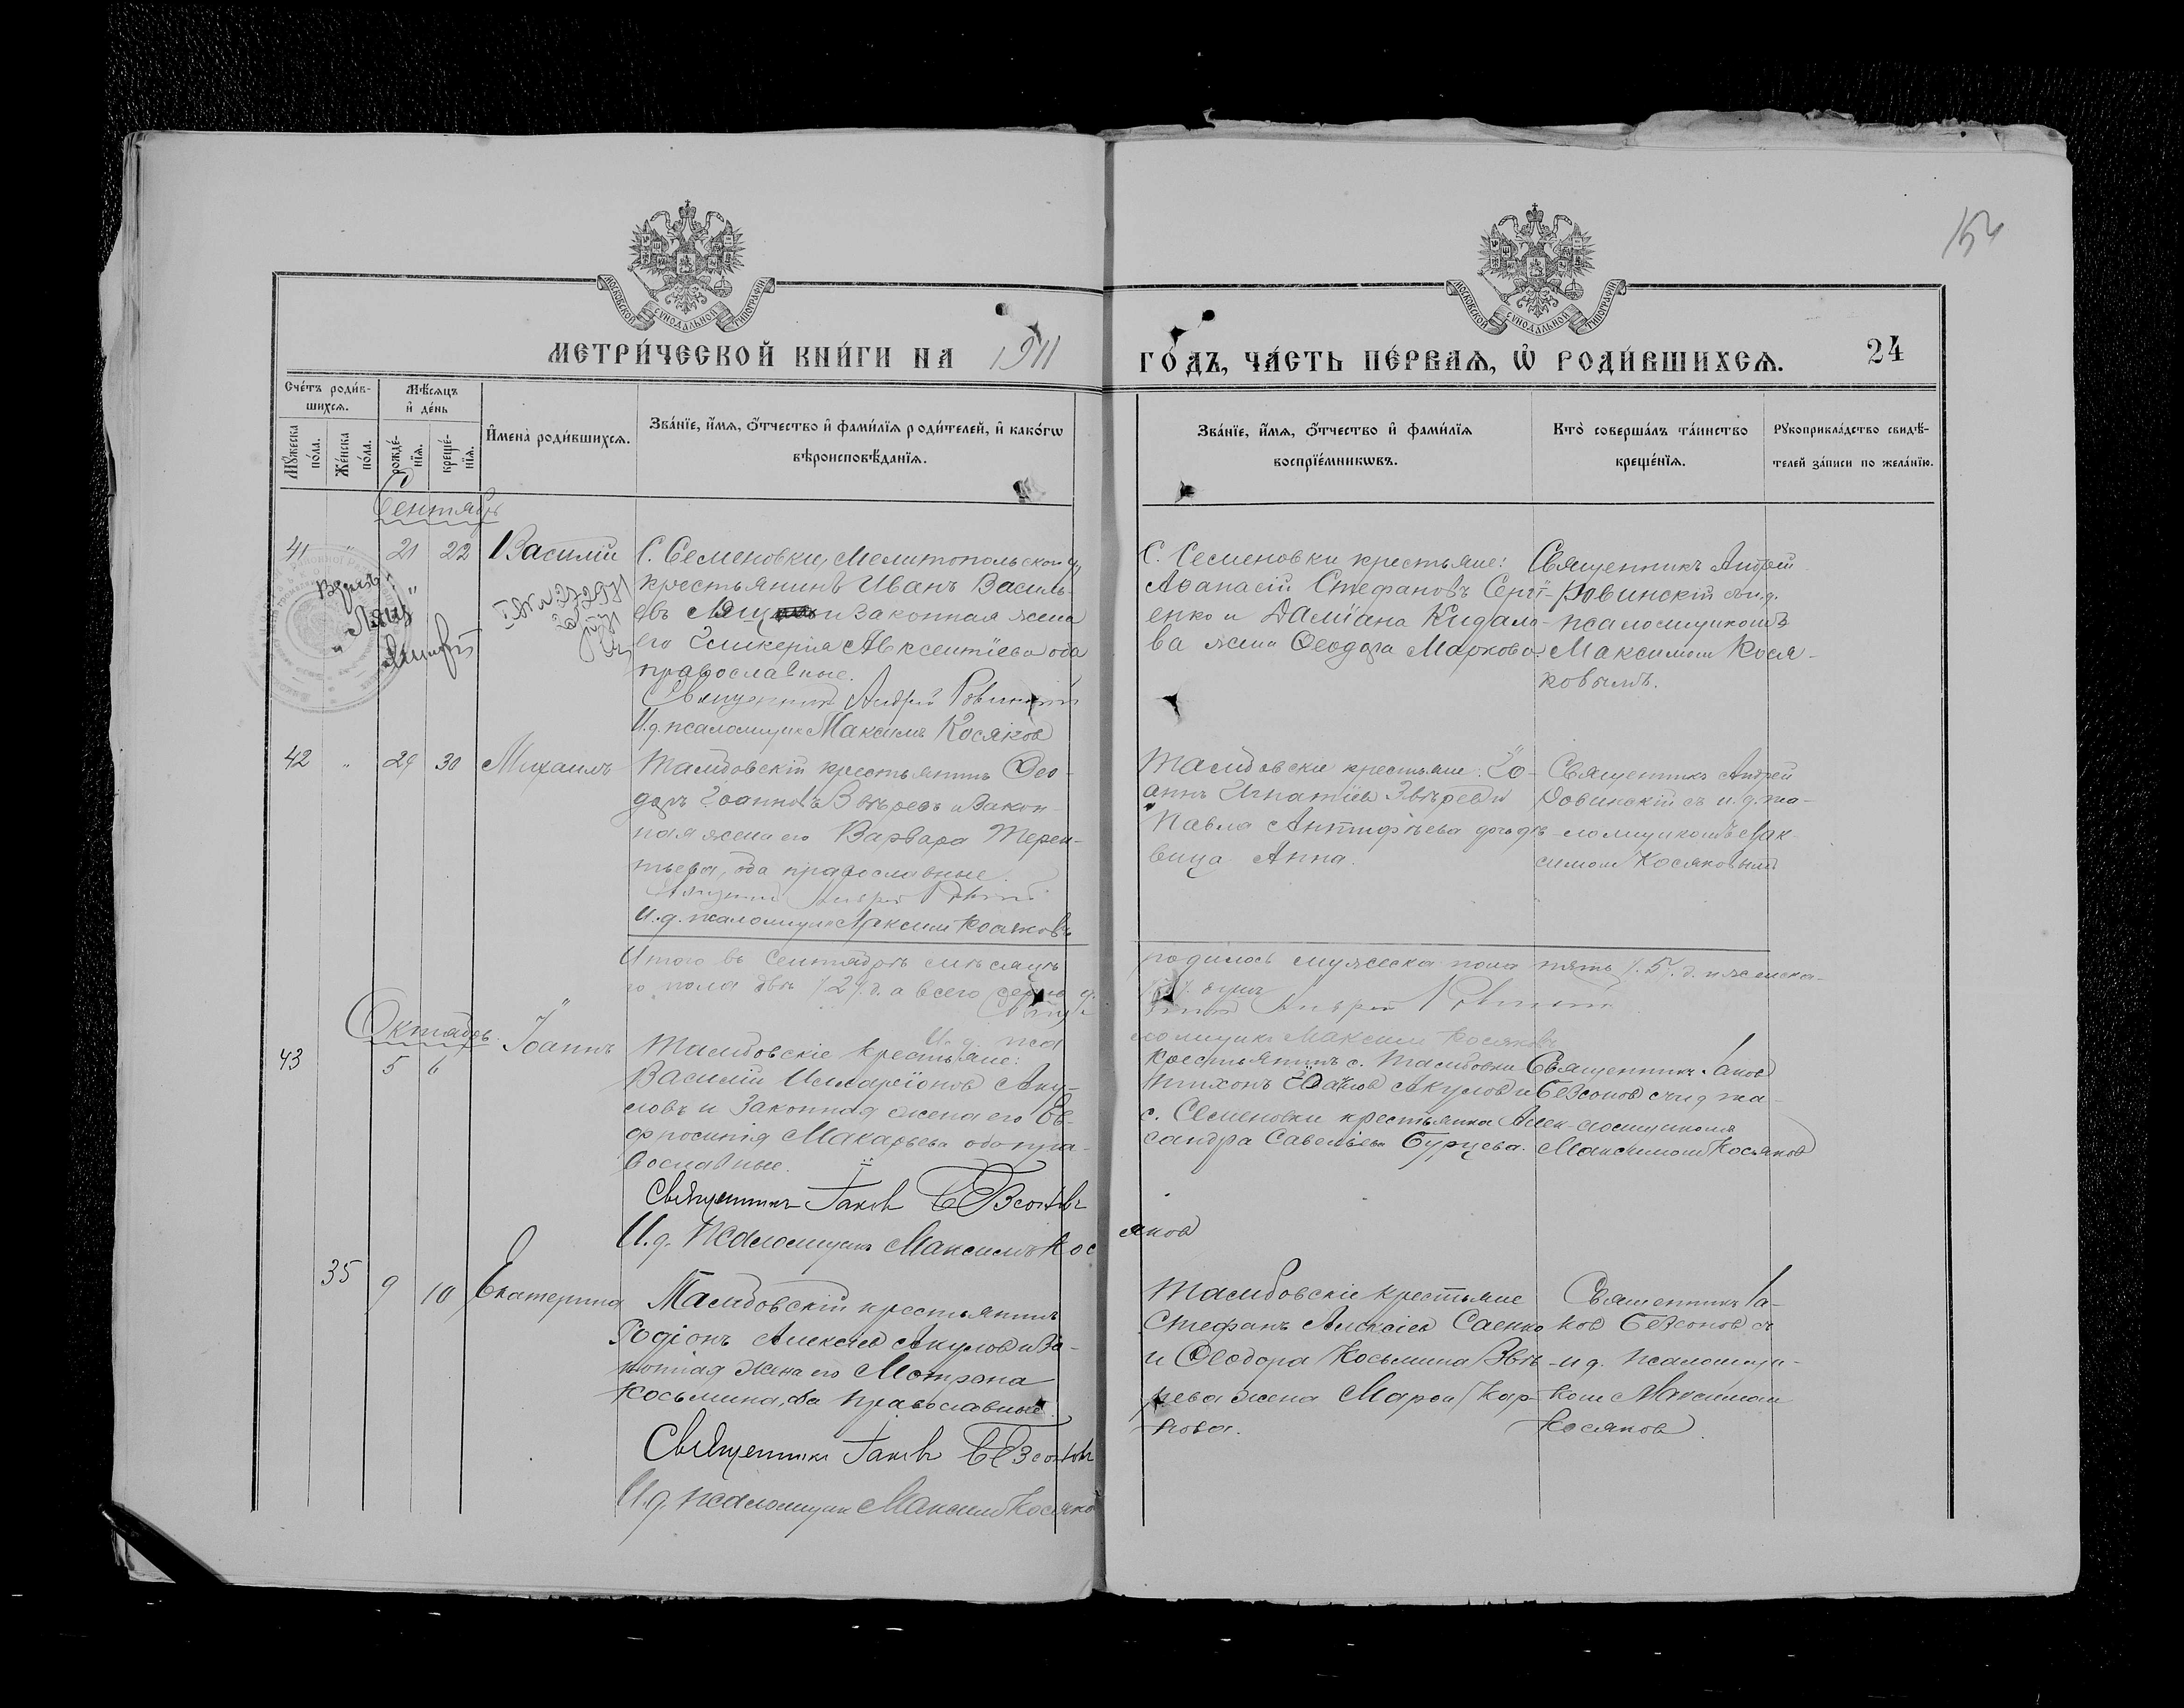 МОСКОВСКОЙ СѴНОДАЛЬНОЙ ТИПОГРАФІИ
МОСКОВСКОЙ СѴНОДАЛЬНОЙ ТИПОГРАФІИ
МЕТРИ́ЧЕСКОЙ КНИ́ГИ НА 1911
ГО́ДЪ, ЧА́СТЬ ПЕ́РВАѦ, Ѡ҆ РОДИ́ВШИХСѦ. 24
Сче́тъ роди́в-
шихсѧ.
Мѣ́сѧцъ
и҆ де́нь
Мꙋ́жеска
по́ла.
Же́нска
по́ла.
рожде́-
нїѧ.
креще́-
нїѧ.
И҆мена̀ роди́вшихсѧ.
Зва́нїе, и҆́мѧ, ѻ҆́тчество и҆ фами́лїѧ роди́телей, и҆ како́гѡ
вѣроисповѣ́данїѧ.
Зва́нїе, и҆́мѧ, ѻ҆́тчество и҆ фами́лїѧ
воспрїе́мникѡвъ.
Кто̀ соверша́лъ та́инство
креще́нїѧ.
Рꙋкоприкла́дство свидѣ́-
телей за́писи по жела́нїю.
Сентябрь
41 " 21 22 Василій
С. Семеновки, Мелитопольскаго у,
крестьянинъ Иванъ Василь-
евъ Лящ и законная жена
его Гликерія Авксентіева оба
православные.
Священникъ Андрей Ровинскій
И.д. псаломщик Максимъ Косяков
С. Семеновки крестьяне:
Аѳанасій Стефановъ Сергі-
енко и Даміана Кидало-
ва жена Ѳеодора Маркова.
Священникъ Андрей
Ровинскій съ и.д.
псаломщикомъ
Максимом Кося-
ковымъ.
42 " 29 30 Михаилъ
Тамбовскій крестьянинъ Ѳео-
доръ Іоанновъ Звѣревъ и закон-
ная жена его Варвара Терен-
тьева, оба православные.
Священник Андрей Ровинскій
И.д. псаломщик Максим Косяковъ
Тамбовскіе крестьяне: Іо-
аннъ Игнатіев Звѣрев и
Павла Антифѣева дочь дѣ-
вица Анна.
Священникъ Андрей
Ровинскій съ и.д. пса-
ломщикомъ Мак-
симом Косяковымъ
Итого въ Сентябрѣ мѣсяцѣ
родилось мужеска пола пять /. 5 /. д. и женска-
го пола двѣ /. 2 /. д. а всего семь
душъ
И.д. пса
ломщикъ Максим Косяковъ
Октябрь
43 5 6 Іоаннъ
Тамбовскіе крестьяне:
Василій Иларіонов Аку-
ловъ и законная жена его Ев-
фросинія Макарьева оба пра-
вославные.
Священникъ Іаков Безсоновъ
И.д. Псаломщикъ Максимъ Кос
яков
крестьянинъ с. Тамбовки
Тихонъ Іоанов Акулов и
с. Семеновки крестьянка Алек-
сандра Савельева Бурцева.
Священникъ Іаков
Безсонов с и д пса-
ломщиком
Максимом Косяков
35 9 10 Екатерина
Тамбовскій крестьянинъ
Родіонъ Алексіев Акулов и за-
конная жена его Мотрона
Косьмина, оба православные.
Священникъ Іаковъ Безсоновъ
И.д. псаломщик Максим Косяков
Тамбовскіе крестьяне
Стефанъ Алексіев Саенко
и Ѳеодора Косьмина Звѣ-
рева жена Марѳа Кар-
пова.
Священникъ Іа-
ков Безсонов съ
и д. псаломщи-
ком Максимом
Косяков.